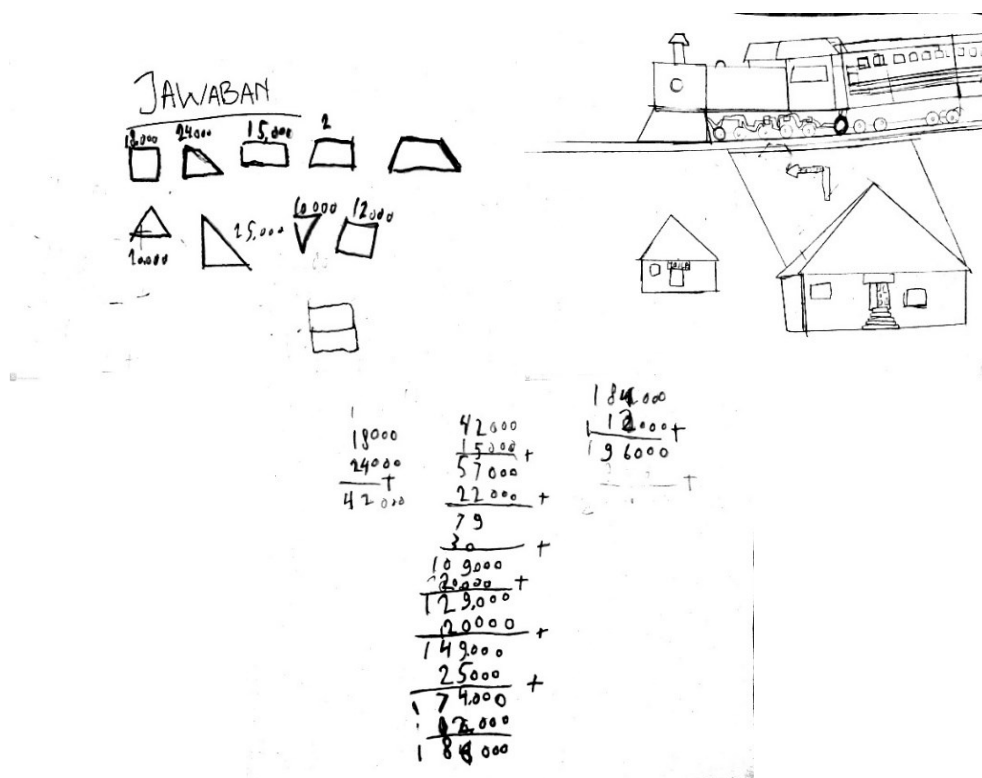 JAWABAN
18.000 24.000 15.000 2
20.000 25.000 10.000 12000
18000
24000
+
42000
42000
15000
+
57000
22000
+
79
30
+
109.000
20.000
+
129.000
20000
+
149.000
25000
+
174.000
000
000
000
000
+
196000